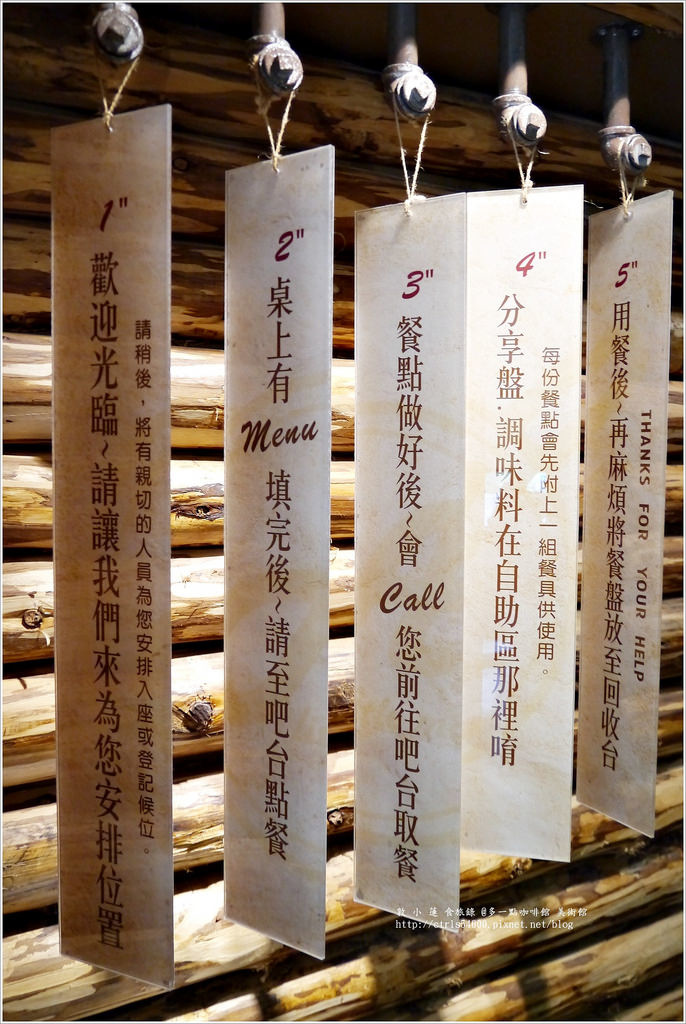 1"
歡迎光臨~請讓我們來為您安排位置
請稍後，將有親切的人員為您安排入座或登記候位。
2"
桌上有 Menu 填完後~請至吧台點餐
3"
餐點做好後~會 Call 您前往吧台取餐
4"
分享盤.調味料在自助區那裡唷
每份餐點會先附上一組餐具供使用。
5"
用餐後~再麻煩將餐盤放至回收台
THANKS FOR YOUR HELP
敦 小 蓮 食旅錄 @多一點咖啡館 美術館
http://ctrls64000.pixnet.net/blog